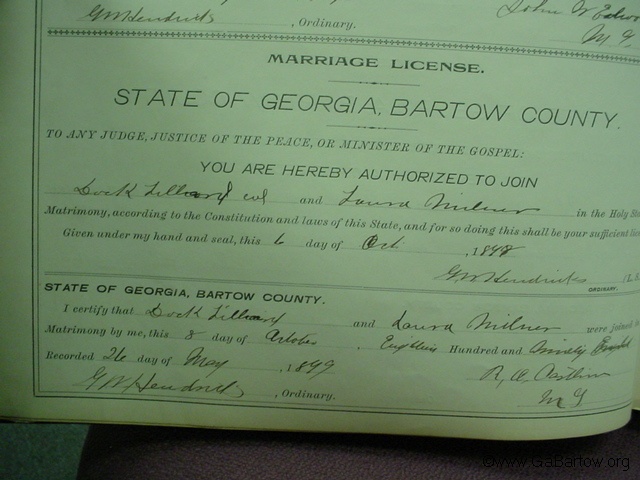 G W Hendricks , Ordinary. John W
M G
MARRIAGE LICENSE.
STATE OF GEORGIA, BARTOW COUNTY.
TO ANY JUDGE, JUSTICE OF THE PEACE, OR MINISTER OF THE GOSPEL:
YOU ARE HEREBY AUTHORIZED TO JOIN
Dock Lilliard col and Laura Milner in the Holy
Matrimony, according to the Constitution and laws of this State, and for so doing this shall be your sufficient
Given under my hand and seal, this 6 day of Oct , 1898
G W Hendricks
ORDINARY.
STATE OF GEORGIA, BARTOW COUNTY.
I certify that Dock Lilliard and Laura Milner were joined
Matrimony by me, this 8 day of October , Eighteen Hundred and Ninety Eight
Recorded 26 day of May , 1899
G W Hendricks , Ordinary. R. A.
M G
©www.GaBartow.org